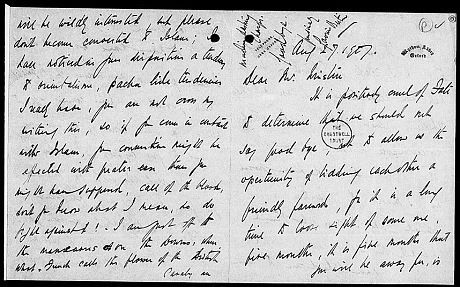 will be wildly interested but please
don't become converted to Islam; I
have noticed in your disposition a tendency
to orientalism, pacha like tendencies
I really have, you are not cross my
writing this, so if you come in contact
with Islam, your conversion might be
effected with greater ease than you
might have supposed, call of the blood,
don't you know what I mean, so do
fight against it! I am just off to
the manoeuvres on the Downs, where
what French calls the flower of the British
Cavalry are
Wytham Abbey,
Oxford.
Aug 27. 1907.
Dear Mr. Winston
It is positively cruel of Fate
to determine that we should not
say good bye, not to allow us the
THE
CHARTWELL
TRUST
opportunity of bidding each other a
friendly farewell, for it is a long
time to loose sight of some one,
five months, it is five months that
you will be away for, is